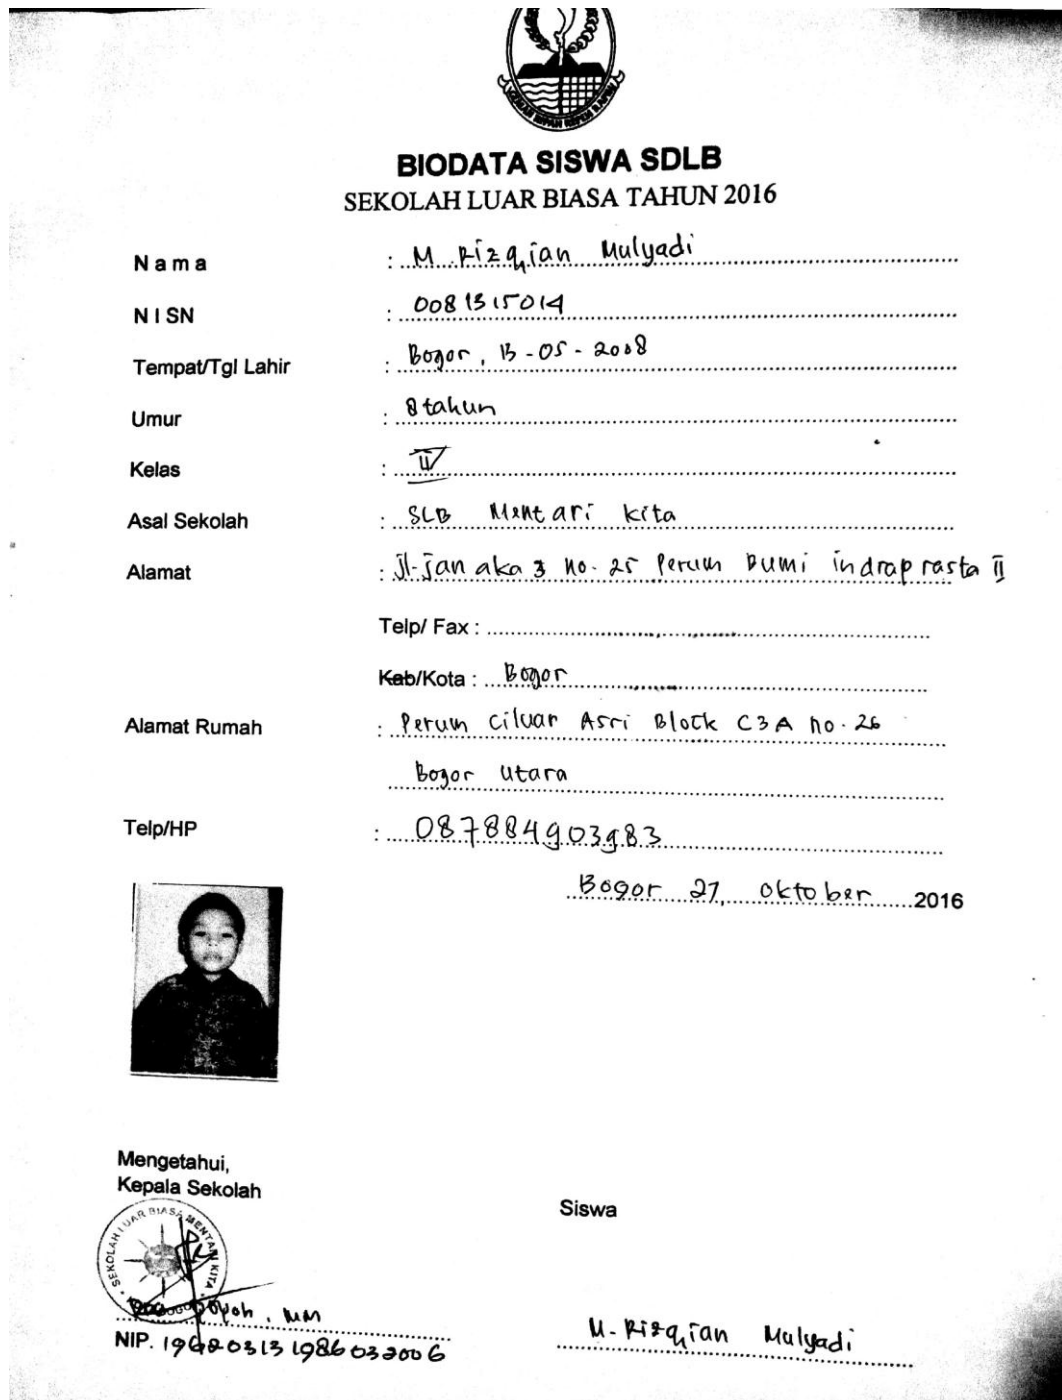 BIODATA SISWA SDLB
SEKOLAH LUAR BIASA TAHUN 2016
Nama : M. Rizqian Mulyadi
NISN : 0081315014
Tempat/Tgl Lahir : Bogor, 13-05-2008
Umur : 8 tahun
Kelas :
Asal Sekolah : SLB Mentari Kita
Alamat : Jl. Janaka 3 no. 25 Perum Bumi indraprasta II
Telp/ Fax :
Kab/Kota : Bogor
Alamat Rumah : Perum Ciluar Asri Block C3A no. 26
Bogor Utara
Telp/HP : 087884903983
Bogor 27, Oktober 2016
Mengetahui,
Kepala Sekolah
Siswa
SEKOLAH LUAR BIASA MENTARI KITA
BOGOR
MM
NIP. 196203131986032006
M. Rizqian Mulyadi